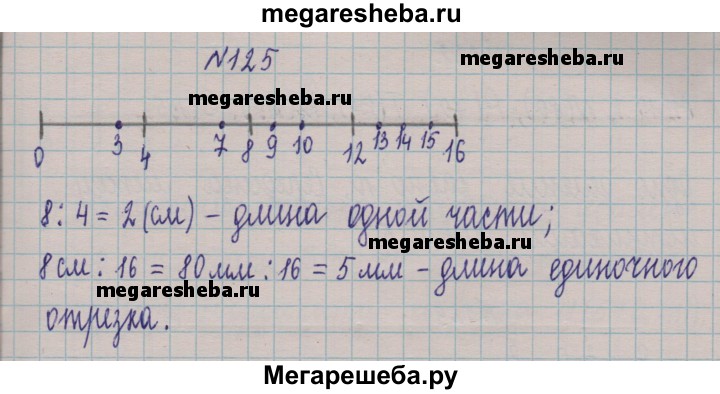 megaresheba.ru
№125
megaresheba.ru
megaresheba.ru
0 3 4 7 8 9 10 12 13 14 15 16
8 : 4 = 2 (см) – длина одной части;
megaresheba.ru
8 см : 16 = 80 мм : 16 = 5 мм – длина единичного
megaresheba.ru
отрезка.
Мегарешеба.ру